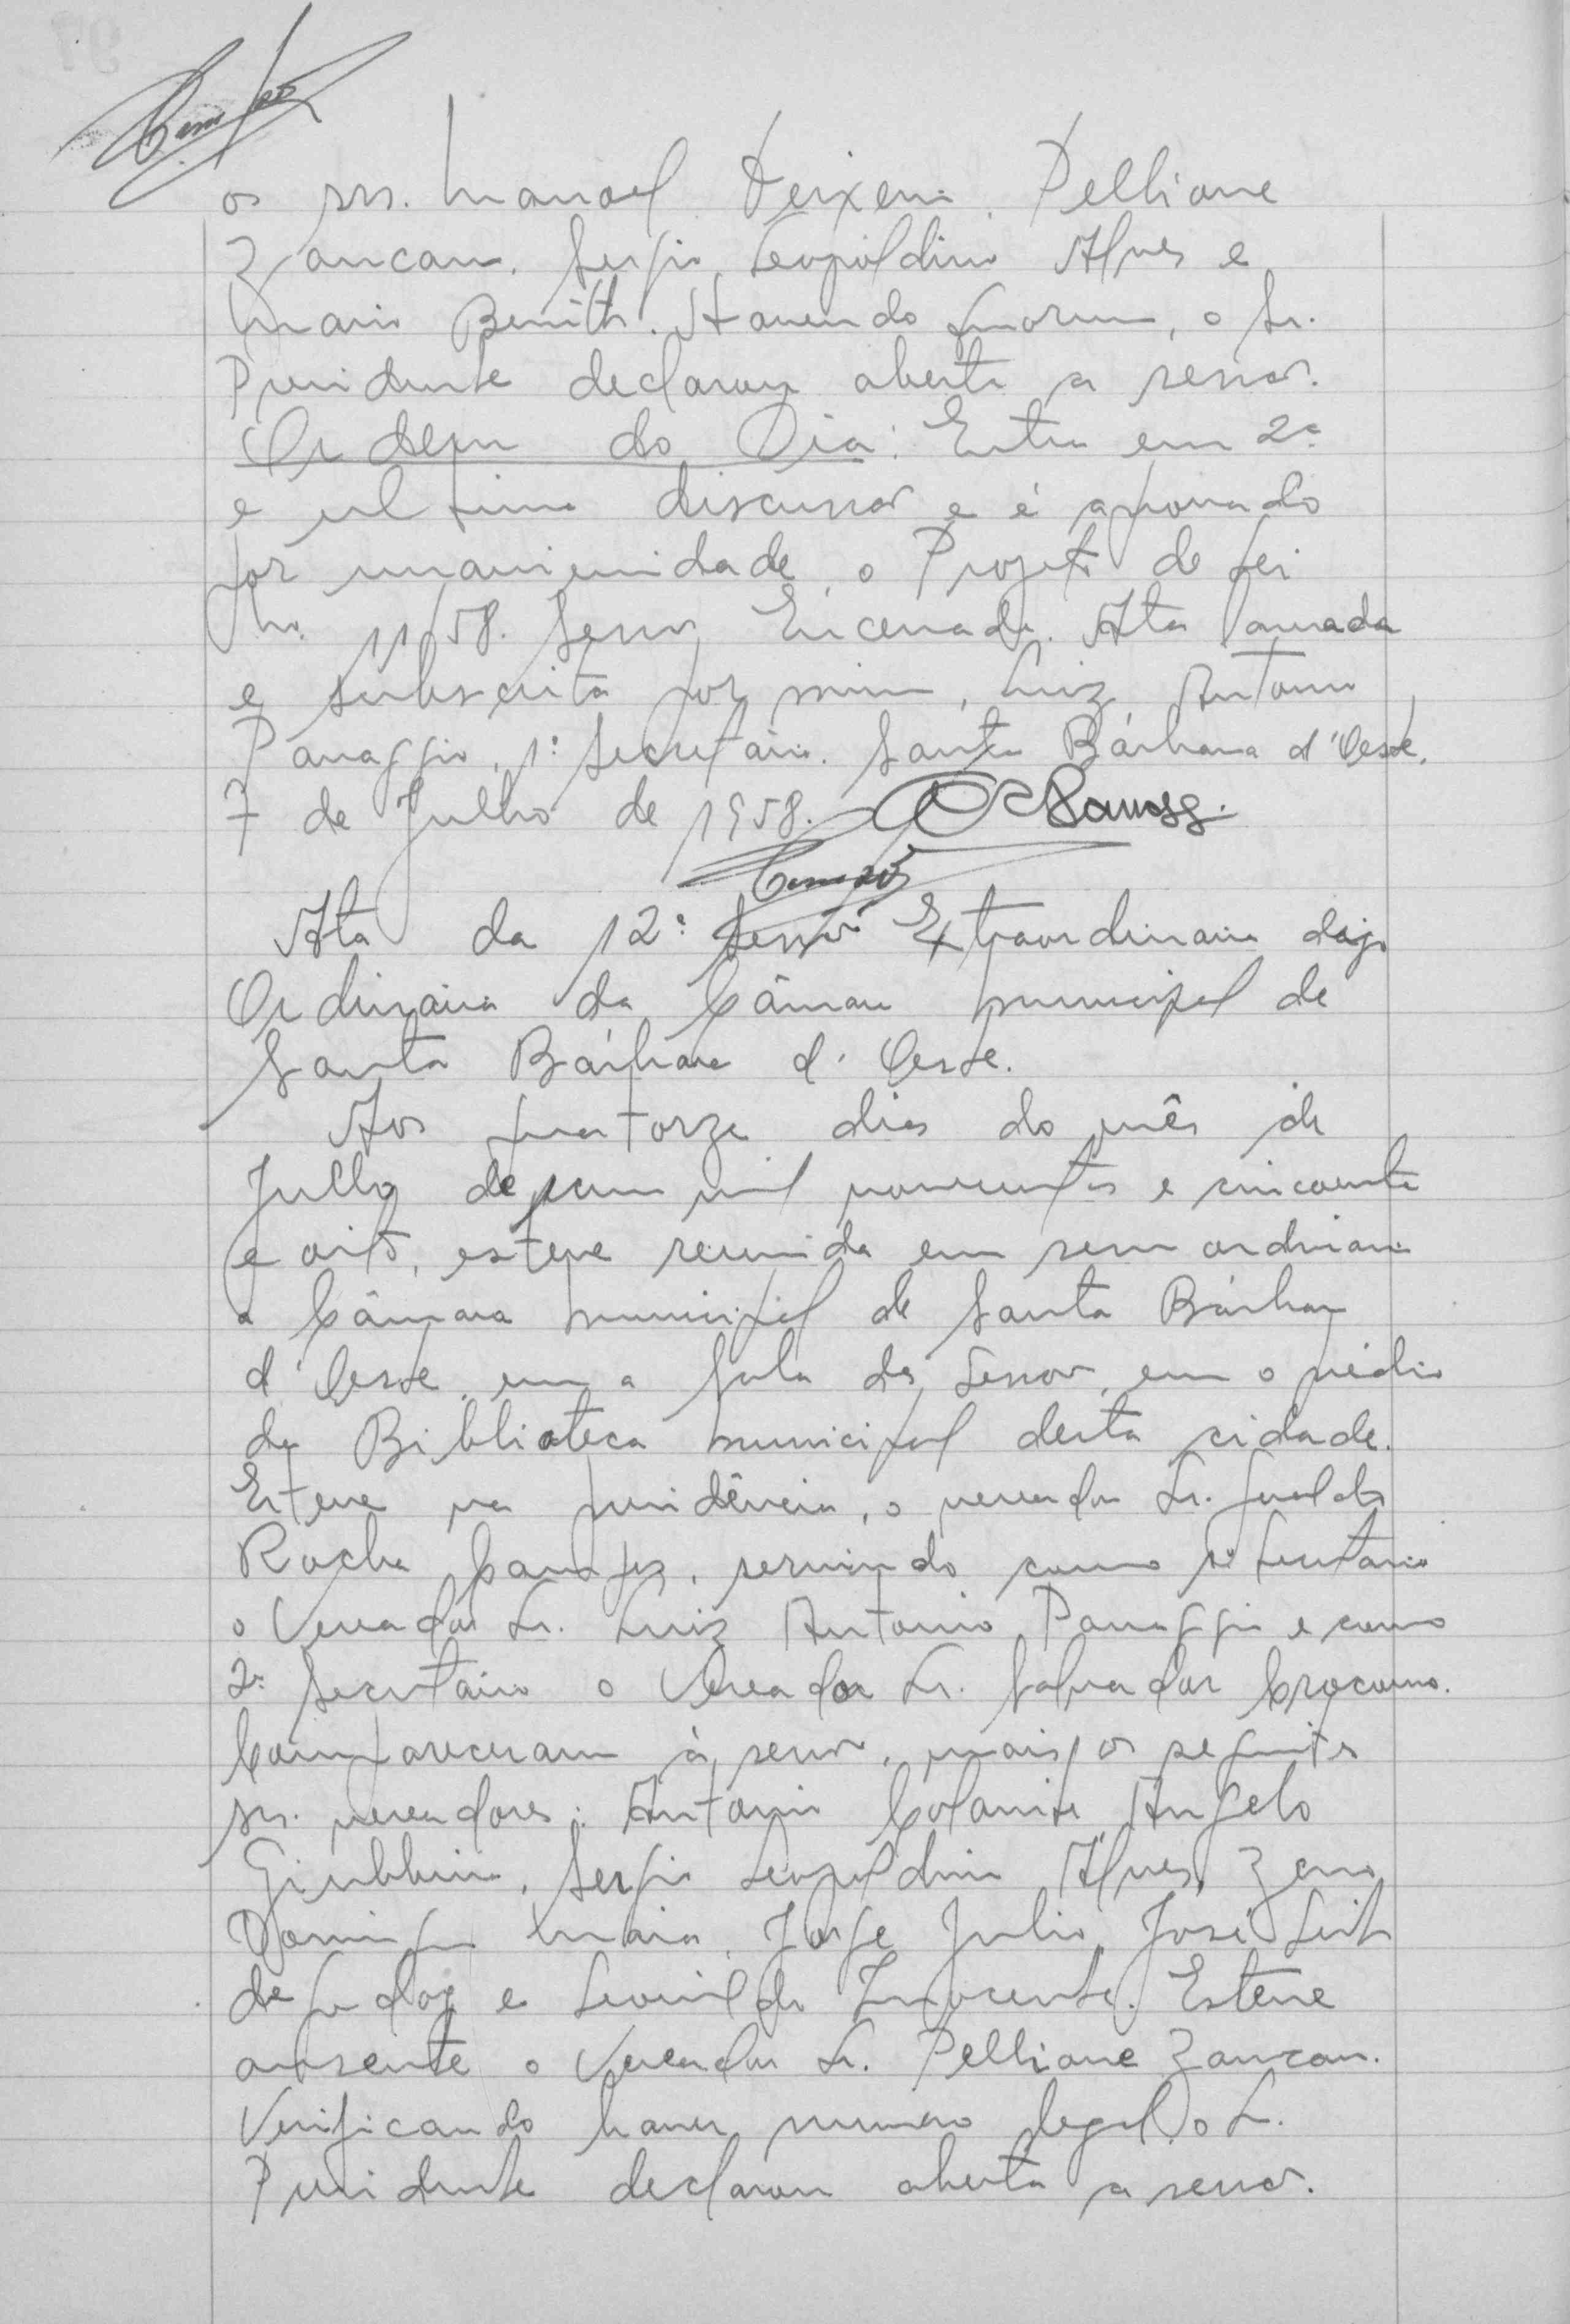 os srs. Manoel Teixeira, Pellione
Zancan, Sergio Leopoldino Alves e
Mario Benith. Havendo quorum, o Sr.
Presidente declarou aberta a sessão.
Ordem do Dia: Entra em 2ª
e ultima discussão e é aprovado
por unanimidade, o Projeto de Lei
No. 11/58. Sessão Encerrada. Ata lavrada
e subscrita por mim, Luiz Antonio
Panaggio, 1º Secretário. Santa Bárbara d'Oeste,
7 de Julho de 1958.
Ata da 12ª Sessão Extraordinaria digo
Ordinária da Câmara Municipal de
Santa Bárbara d'Oeste.
Aos quatorze dias do mês de
Julho de um mil novecentos e cincoenta
e oito, esteve reunida em sessão ordinaria
a Câmara Municipal de Santa Bárbara
d'Oeste, em a Sala das Sessões, em o prédio
da Biblioteca Municipal desta cidade.
Esteve na presidência, o vereador Sr. Geraldo
Rocha Campos, servindo como 1º Secretário
o Vereador Sr. Luiz Antonio Panaggio e como
2º Secretário o Vereador Sr. Salvador
Compareceram à sessão, mais os seguintes
srs. vereadores: Antonio Angelo
Giubbina, Sergio Leopoldino Alves, Zeno
Domingos Maia, Jorge Julio, José Leite
de Godoy e Leovildo Inocente. Esteve
ausente o Vereador Sr. Pellione Zancan.
Verificando haver numero legal, o Sr.
Presidente declarou aberta a sessão.